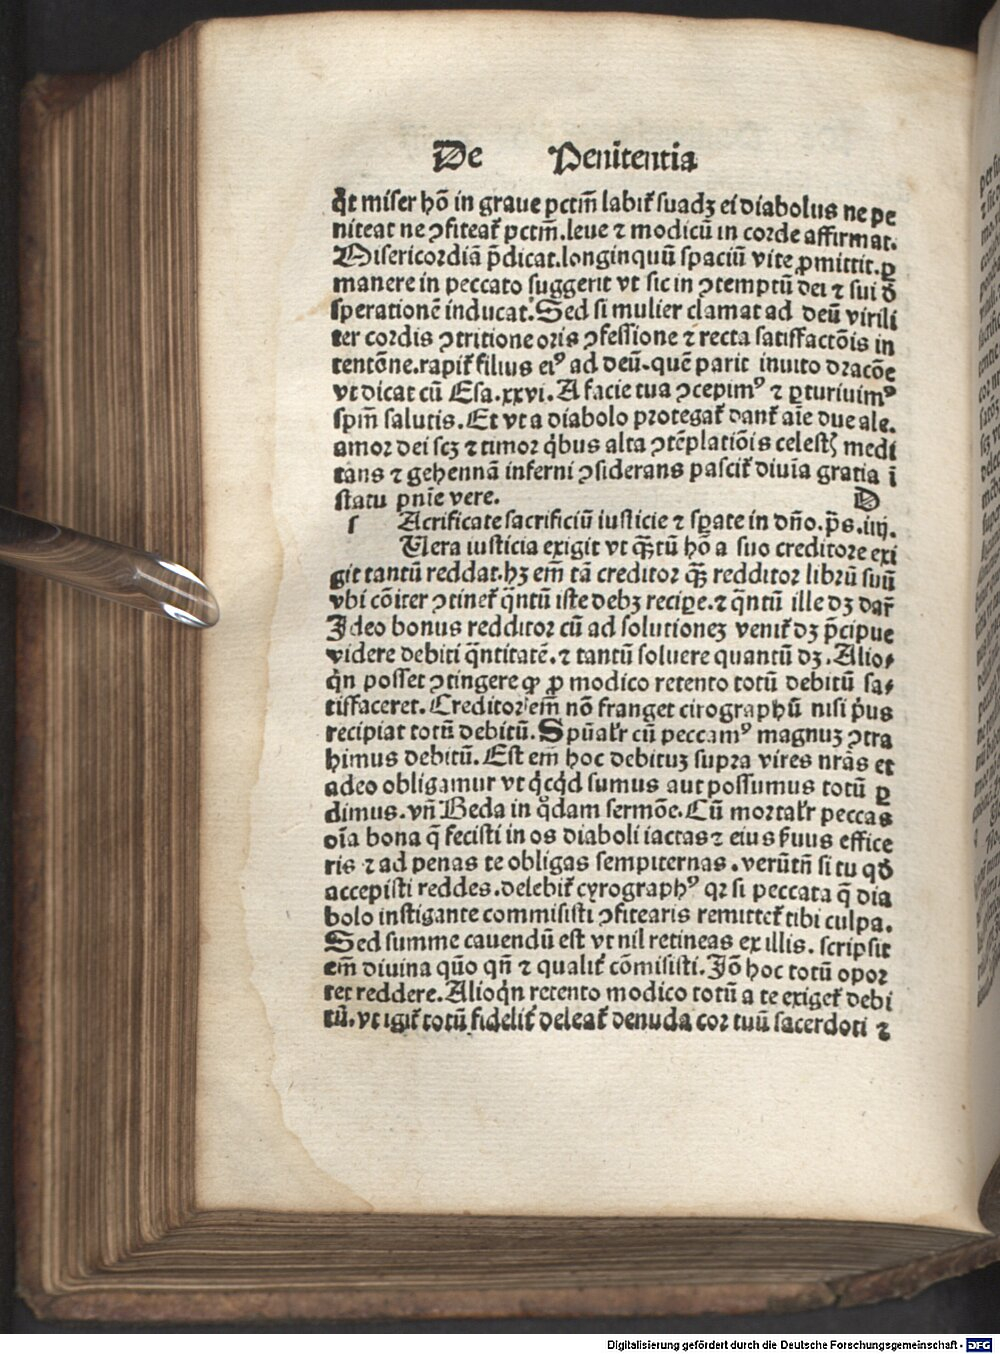 De Penitentia
q̄t miser hō in graue pctm̄ labit᷑ suadꝫ ei diabolus ne pe
niteat ne ꝯfiteat᷑ pctm̄. leue ⁊ modicū in corde affirmat.
Misericordiā p̄dicat. longinquū spaciū vite ꝓmittit. ꝑ
manere in peccato suggerit vt sic in ꝯtemptū dei ⁊ sui d̄
sperationē inducat. Sed si mulier clamat ad deū virili
ter cordis ꝯtritione oris ꝯfessione ⁊ recta satisfactōis in
tentōne. rapit᷑ filius eiꝰ ad deū. quē parit inuito dracōe
vt dicat cū Esa. xxvi. A facie tua ꝯcepimꝰ ⁊ ꝑturiuimꝰ
spm̄ salutis. Et vt a diabolo protegat᷑ dant᷑ aīe due ale.
amor dei scꝫ ⁊ timor q̇bus alta ꝯtēplatiōis celestꝭ medi
tans ⁊ gehennā inferni ꝯsiderans pascit᷑ diuīa gratia ī
statu pnīe vere. D
s Acrificate sacrificiū iusticie ⁊ sꝑate in dn̄o. p̄s. iiij.
Uera iusticia exigit vt qꝫ̄tū hō a suo creditore exi
git tantū reddat. hꝫ em̄ tā creditor qꝫ̄ redditor librū suū
vbi cōiter ꝯtinet᷑ q̄ntū iste debꝫ recipe. ⁊ q̄ntū ille dꝫ dar̄
Ideo bonus redditor cū ad solutioneꝫ venit᷑ dꝫ p̄cipue
videre debiti q̄ntitatē. ⁊ tantū soluere quantū dꝫ. Alio⸗
q̇n posset ꝯtingere ꝙ ꝓ modico retento totū debitū sa⸗
tisfaceret. Creditor em̄ nō franget cirographū nisi p̓us
recipiat totū debitū. Spūal᷑r cū peccamꝰ magnuꝫ ꝯtra
himus debitū. Est em̄ hoc debituꝫ supra vires nr̄as et
adeo obligamur vt q̇cq̇d sumus aut possumus totū ꝑ
dimus. vn̄ Beda in q̊dam sermōe. Cū mortal᷑r peccas
oīa bona q̄ fecisti in os diaboli iactas ⁊ eius s̓uus effice
ris ⁊ ad penas te obligas sempiternas. verūtn̄ si tu qd̄
accepisti reddes. delebit᷑ cyrographꝰ qꝛ si peccata q̄ dia
bolo instigante commisisti ꝯfitearis remittet᷑ tibi culpa.
Sed summe cauendū est vt nil retineas ex illis. scripsit
em̄ diuina qūo qn̄ ⁊ qualit᷑ cōmisisti. Iō hoc totū opor
tet reddere. Alioq̇n retento modico totū a te exiget᷑ debi
tū. vt igit᷑ totū fidelit᷑ deleat᷑ denuda cor tuū sacerdoti ⁊
Digitalisierung gefördert durch die Deutsche Forschungsgemeinschaft - DFG